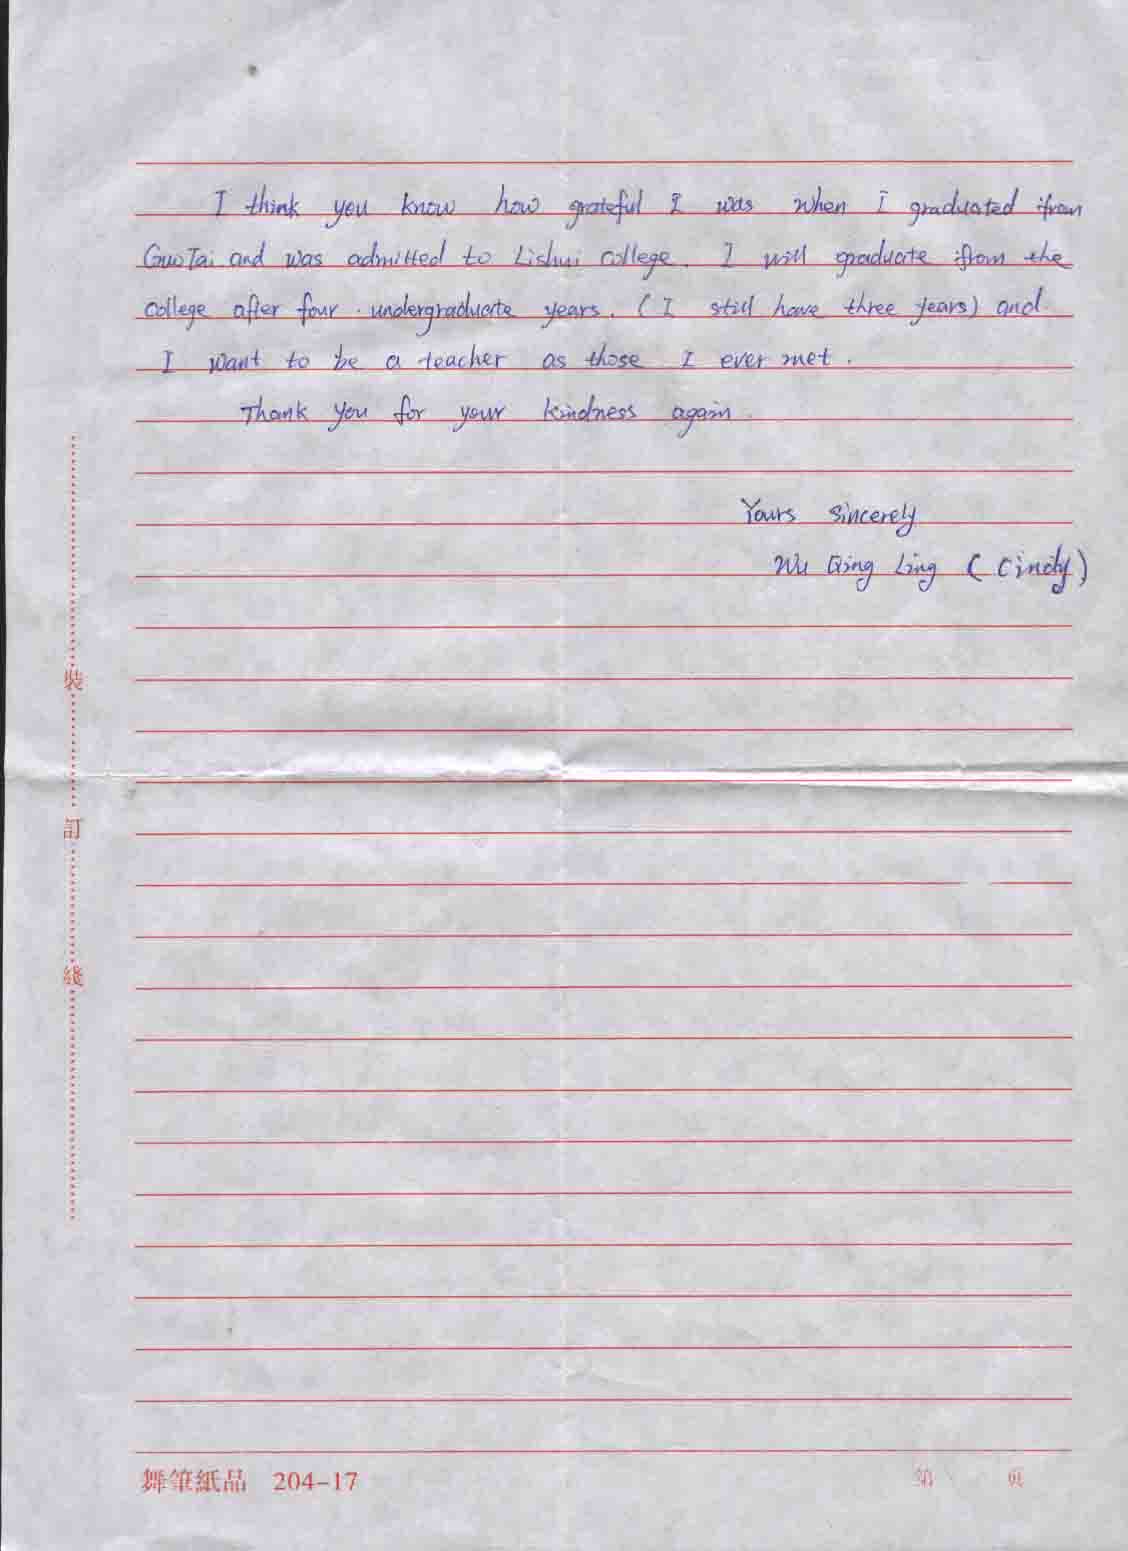 I think you know how grateful I was when I graduated from
GuoTai and was admitted to Lishui college. I will graduate from the
college after four undergraduate years. (I still have three years) and
I want to be a teacher as those I ever met.
Thank you for your kindness again.
Yours sincerely
Wu Qing Ling (Cindy)
裝
訂
綫
舞筆紙品 204-17
第 頁